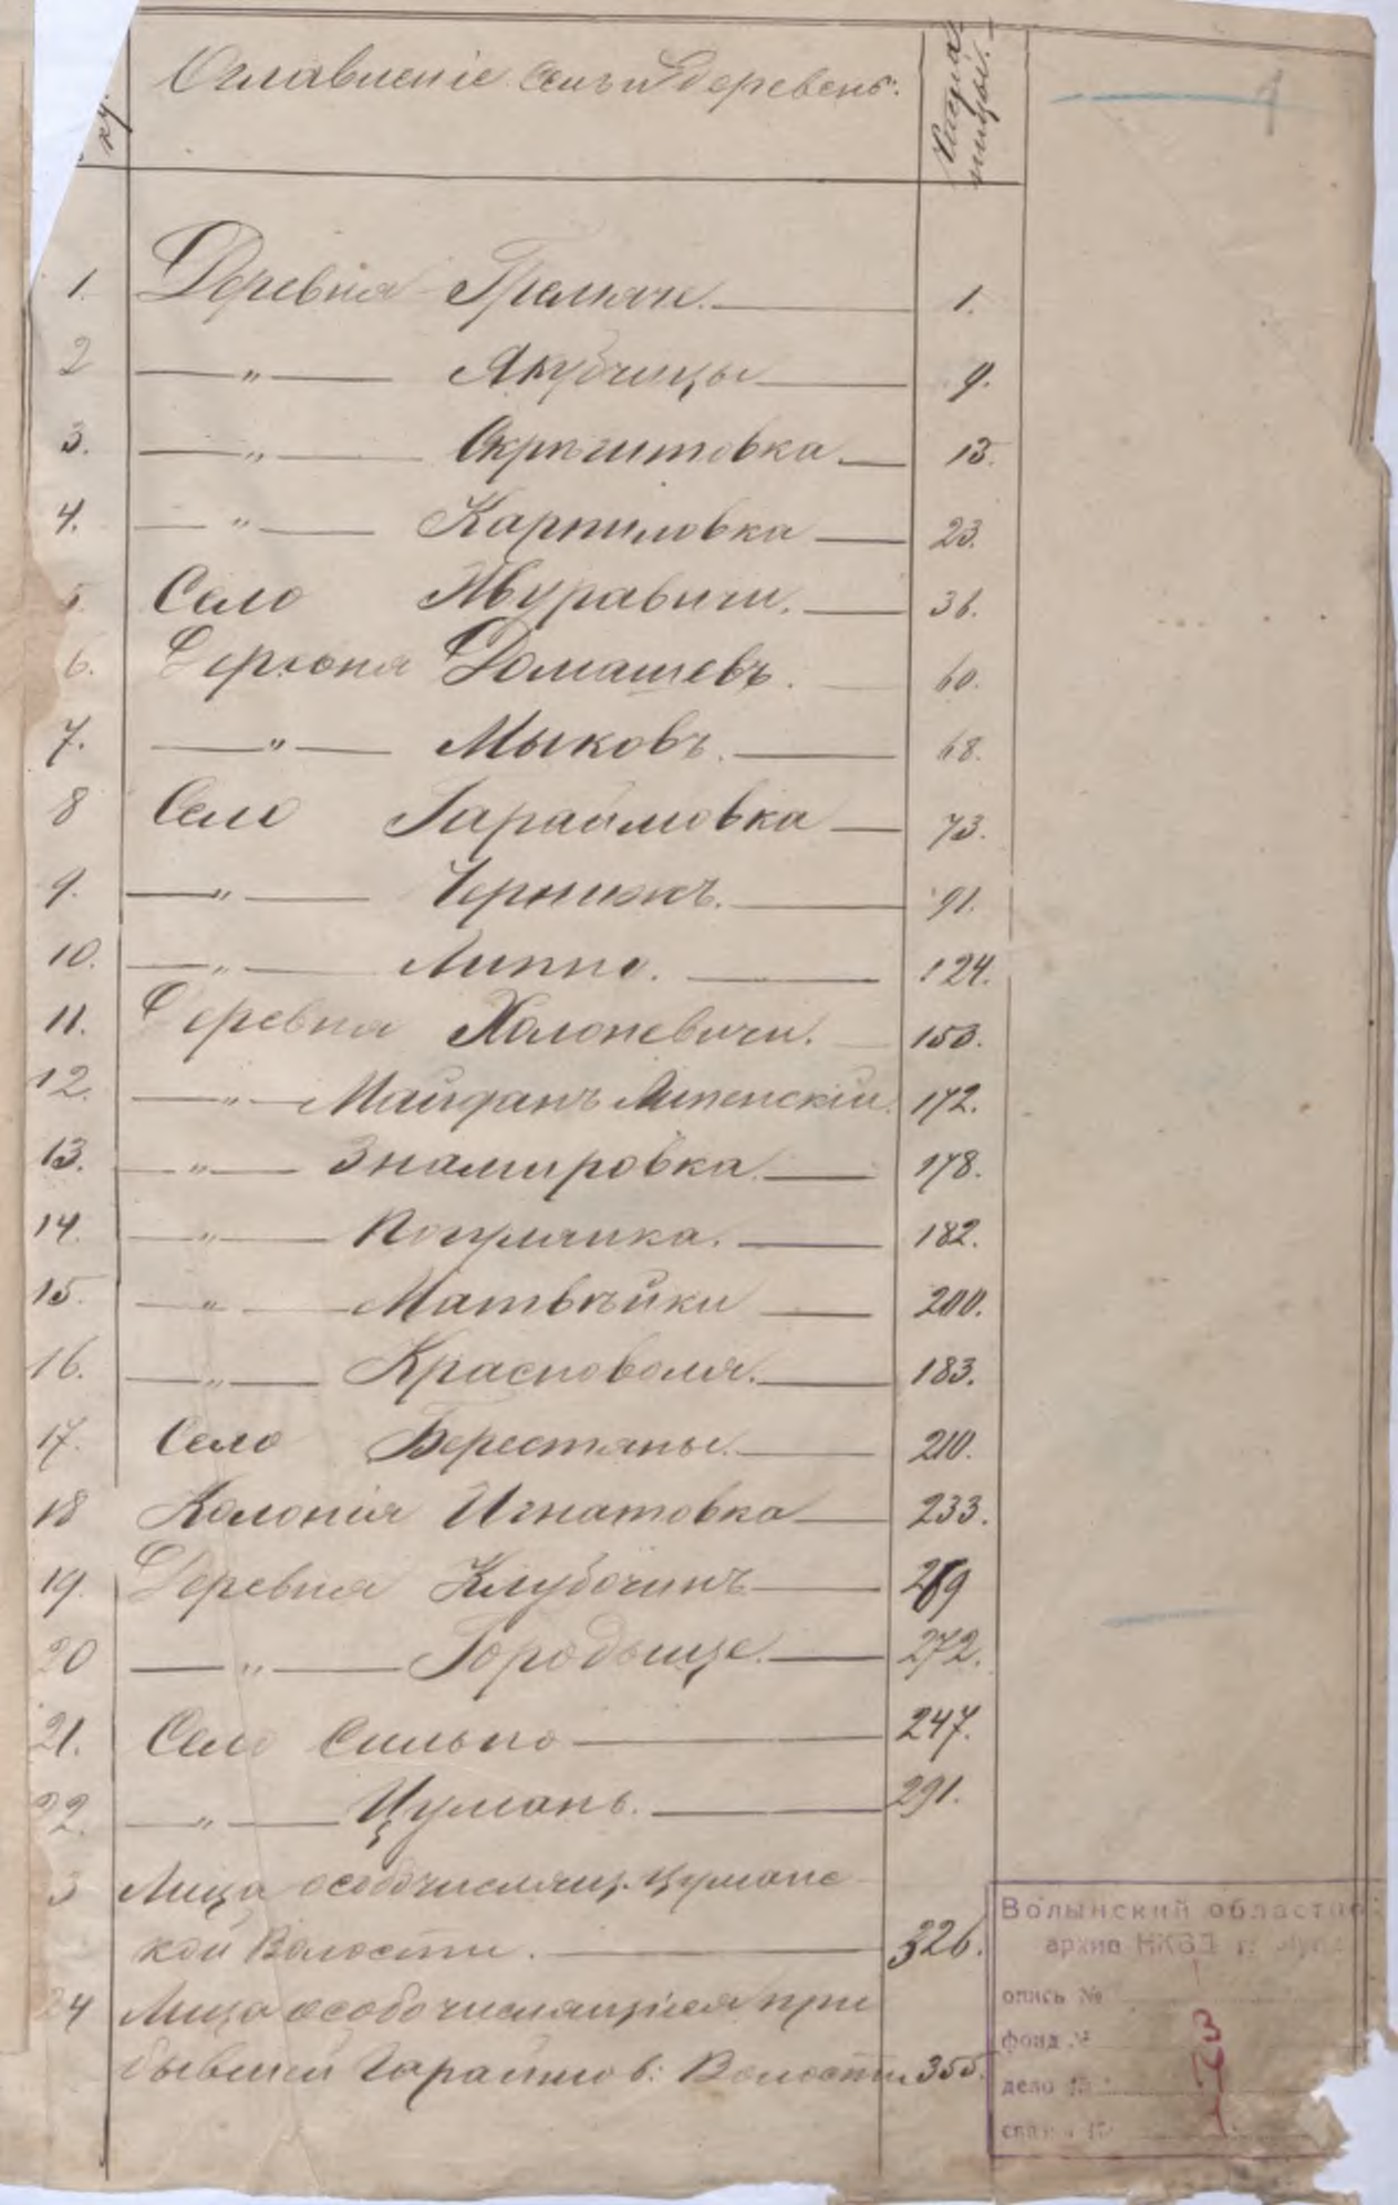 Оглавленіе селъ и деревень.
Страницы.
1
1. Деревня Гремяче. 1.
2 — " — Якубчицы 9.
3. — " — Скреготовка 13.
4. — " — Карпиловка 23.
5. Село Журавичи. 36.
6. Деревня Домашевъ. 60.
7. — " — Мыковъ. 68.
8 Село Гараймовка 73.
9. — " — Чернижъ. 91.
10. — " — Липно. 124.
11. Деревня Холопевичи. 150.
12. — " — Майданъ Липенскій. 172.
13. — " — Знамировка. 178.
14. — " — 182.
15. — " — Матвѣйки 200.
16. — " — Красноволя. 183.
17. Село Берестяны. 210.
18 Колонія Игнатовка 233.
19. Деревня Клубочинъ 269
20 — " — Городыще. 272.
21. Село Сильно 247.
22. — " — Цумань. 291.
3 Лица особочислящ. Цуманс
кой Волости. 326.
24 Лица особочислящіеся при
бывшей Гараймов: Волости 355.
Волынский областной
архив НКВД г.
опись №
фонд №
дело №